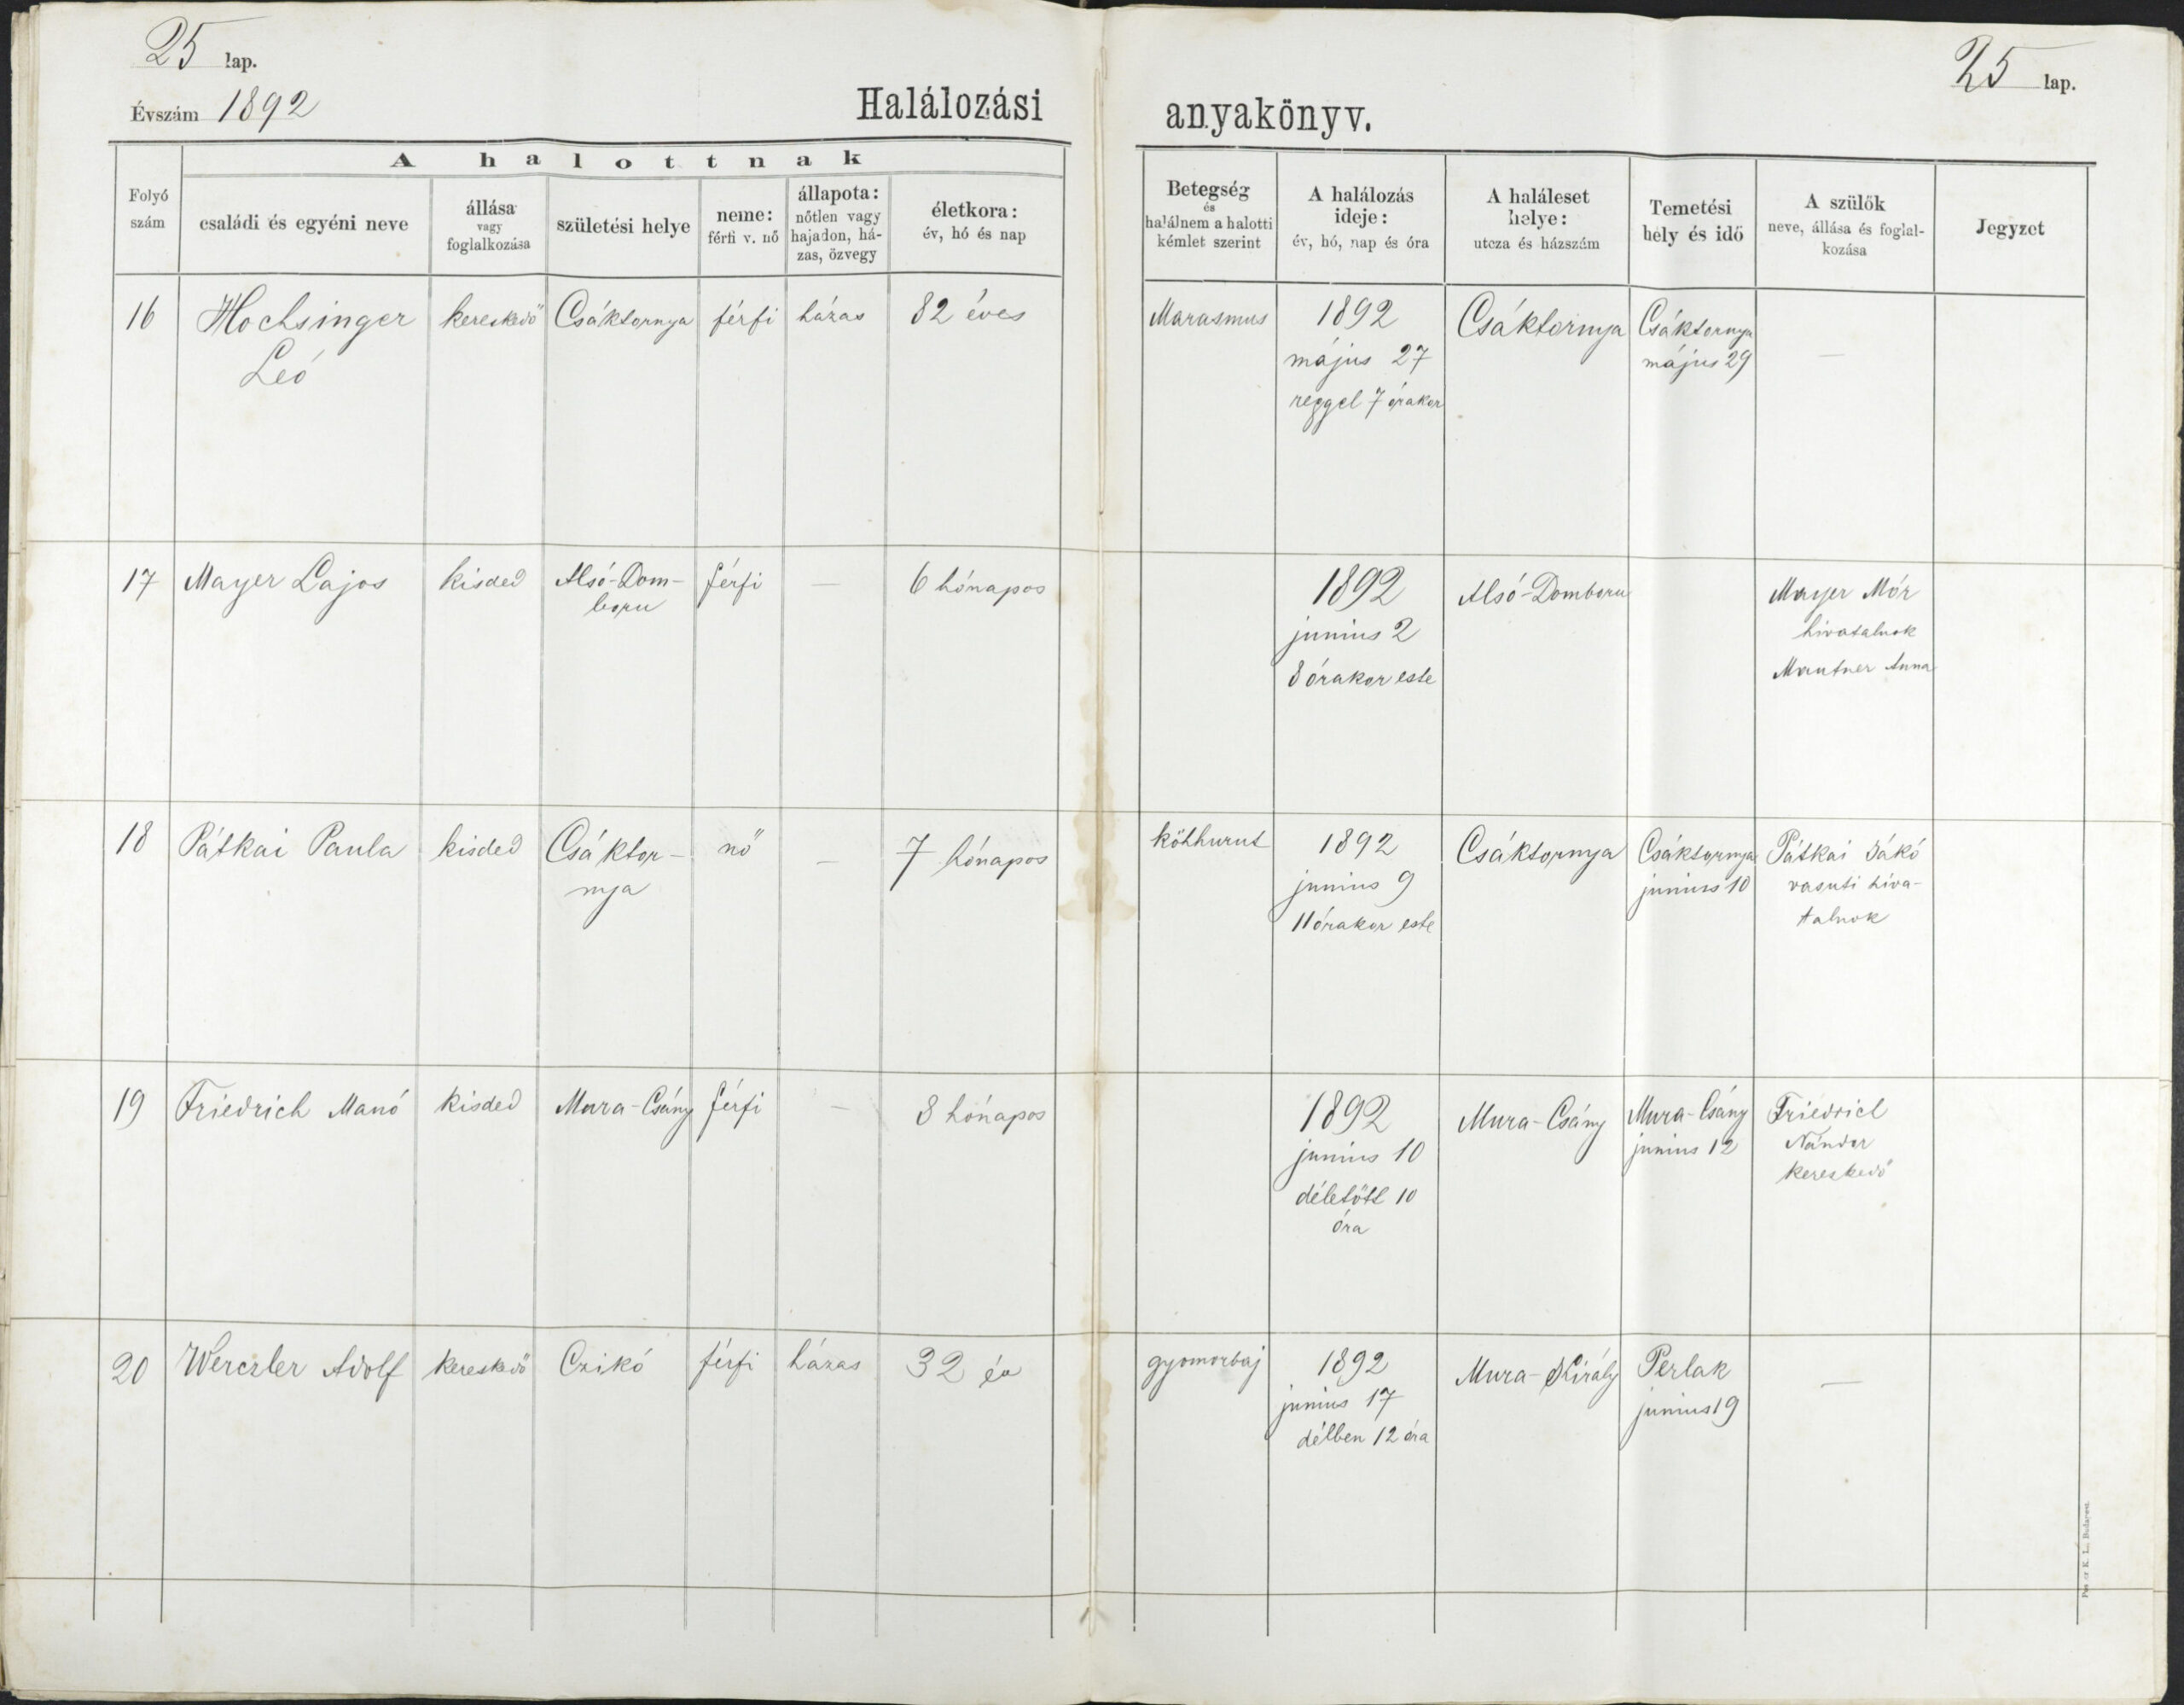 25 lap.
25 lap.
Évszám 1892
Halálozási anyakönyv.
A halottnak
Folyó szám
családi és egyéni neve
állása vagy foglalkozása
születési helye
neme: férfi v. nő
állapota: nőtlen vagy hajadon, házas, özvegy
életkora: év, hó és nap
Betegség és halálnem a halotti kémlet szerint
A halálozás ideje: év, hó, nap és óra
A haláleset helye: utcza és házszám
Temetési hely és idő
A szülők neve, állása és foglalkozása
Jegyzet
16
Hochsinger
Leó
kereskedő
Csáktornya
férfi
házas
82 éves
Marasmus
1892
május 27
reggel 7 órakor
Csáktornya
Csáktornya
május 29
—
17
Mayer Lajos
kisded
Alsó-Dom-
boru
férfi
—
6 hónapos
1892
junius 2
8 órakor este
Alsó-Domboru
Mayer Mór
hivatalnok
Mautner Anna
18
Pátkai Paula
kisded
Csáktor-
nya
nő
—
7 hónapos
köhhurut
1892
junius 9
11 órakor este
Csáktornya
Csáktornya
junius 10
Pátkai Jákó
vasuti hiva-
talnok
19
Friedrich Manó
kisded
Mura-Csány
férfi
—
8 hónapos
1892
junius 10
délelőtt 10
óra
Mura-Csány
Mura-Csány
junius 12
Friedrich
Nándor
kereskedő
20
Werczler Adolf
kereskedő
Czikó
férfi
házas
32 év
gyomorbaj
1892
junius 17
délben 12 óra
Mura-Király
Perlak
junius 19
—